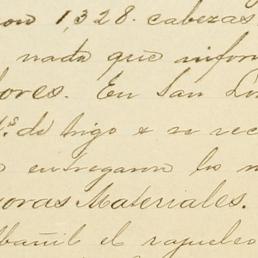 ron 1,328. cabezas
nada que infor
lores. En San Lo
s. de trigo & se rec
entregaron los m
joras Materiales.
lbañil el zaqueleo